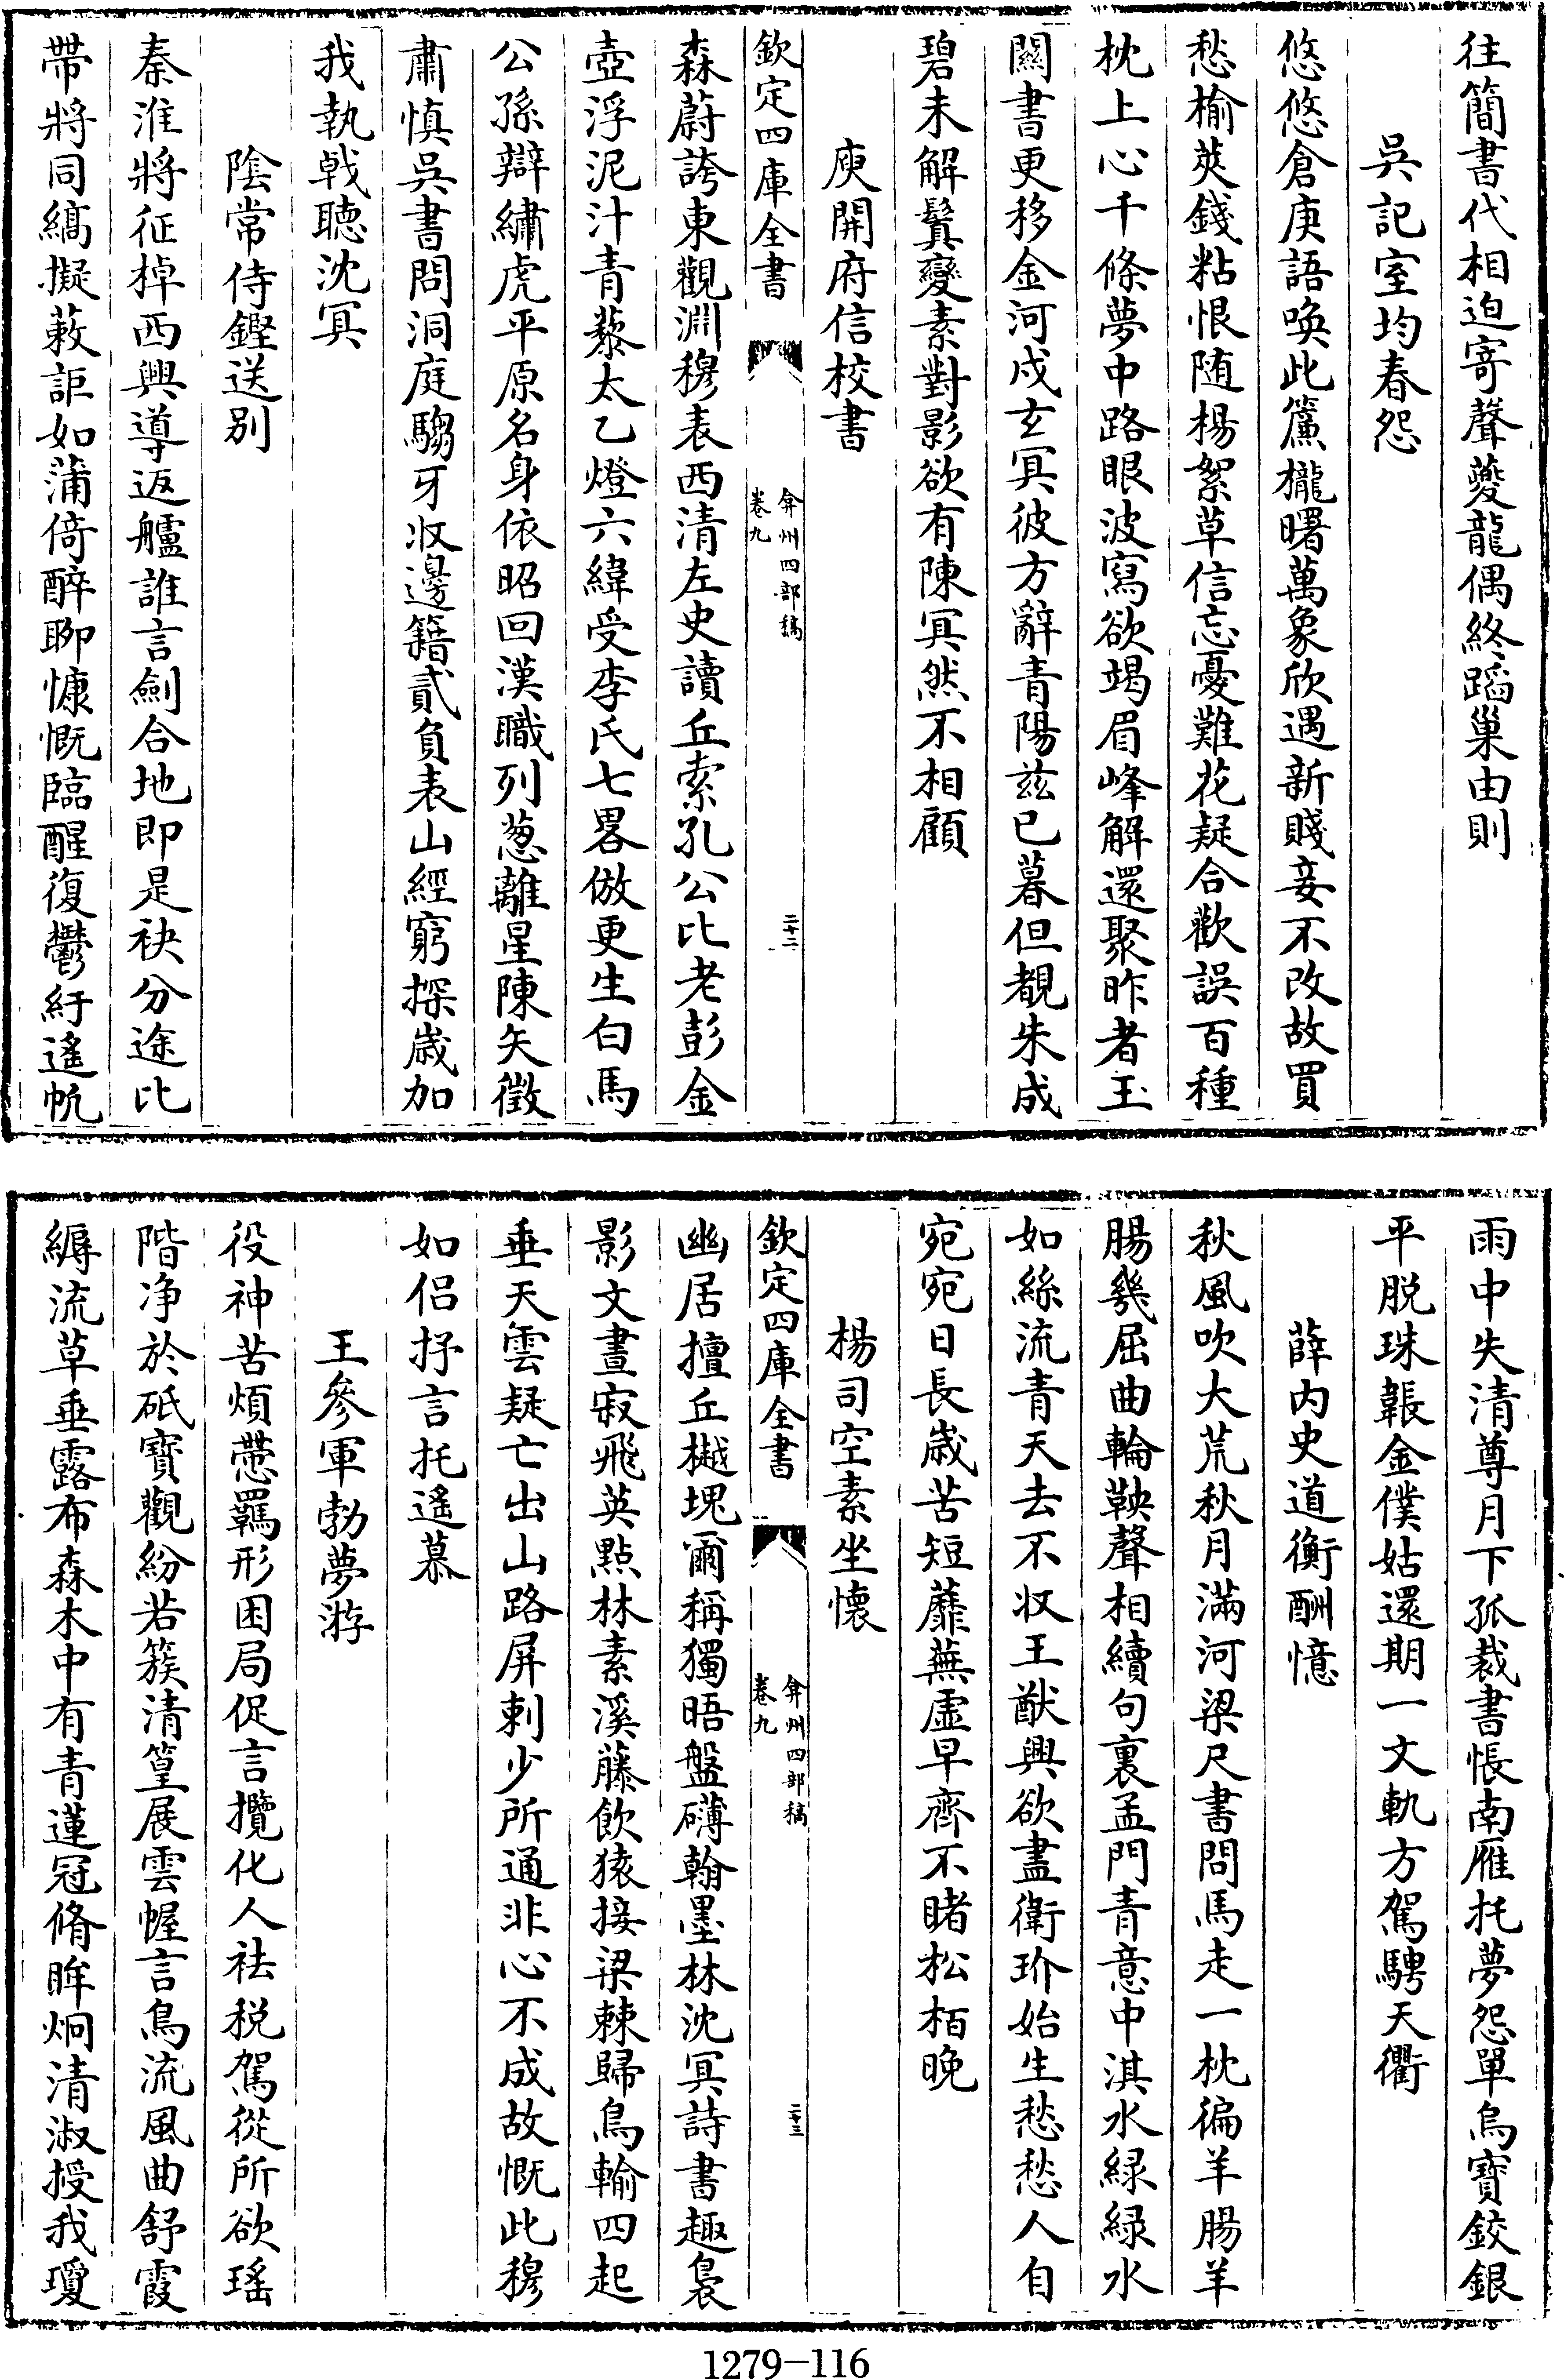 往簡書代相迫寄聲夔龍偶終蹈巢由則
吳記室均春怨
悠悠倉庚語喚此簾櫳曙萬象欣遇新賤妾不改故買
愁榆莢錢粘恨随楊絮草信忘憂難花疑合歡誤百種
枕上心千條夢中路眼波寫欲竭眉峰解還聚昨者玉
關書更移金河戍玄冥彼方辭青陽兹已暮但覩朱成
碧未解鬒變素對影欲有陳冥然不相顧
庾開府信校書
欽定四庫全書
弇州四部稿
卷九
二十二
森蔚誇東觀淵穆表西清左史讀丘索孔公比老彭金
壺浮泥汁青藜太乙燈六緯受李氏七畧倣更生白馬
公孫辯繡虎平原名身依昭回漢職列葱離星陳矢徵
肅慎吳書問洞庭騶牙收邊籍貳負表山經窮探歲加
我執戟聽沈冥
陰常侍鏗送别
秦淮將征棹西興導返艫誰言劍合地即是袂分途比
帶將同縞擬蔌詎如蒲倚醉聊慷慨臨醒復鬱紆遙帆
雨中失清尊月下孤裁書悵南雁托夢怨單烏寶鉸銀
平脱珠韔金僕姑還期一文軌方駕騁天衢
薛内史道衡酬憶
秋風吹大荒秋月滿河梁尺書問馬走一枕徧羊腸羊
腸幾屈曲輪鞅聲相續句裏孟門青意中淇水緑緑水
如絲流青天去不收王猷興欲盡衛玠始生愁愁人自
宛宛日長歲苦短蘼蕪虛早齊不睹松栢晚
楊司空素坐懷
欽定四庫全書
弇州四部稿
卷九
二十三
幽居擅丘樾塊爾稱獨晤盤礴翰墨林沈冥詩書趣裊
影文晝寂飛英點林素溪藤飲猿接梁棘歸鳥輸四起
垂天雲疑亡出山路屏刺少所通非心不成故慨此穆
如侣抒言托遙慕
王參軍勃夢游
役神苦煩懘羈形困局促言攬化人袪税駕從所欲瑤
階净於砥寶觀紛若簇清篁展雲幄言鳥流風曲舒霞
縟流草垂露布森木中有青蓮冠脩眸炯清淑授我瓊
1279—116